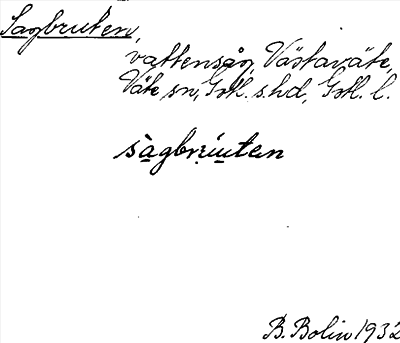 Sagbruten,
vattensåg, Västaväte,
Väte sn, Gotl. s. hd, Gotl. l.
sàgbri̯u̯ten
B. Bolin 1932